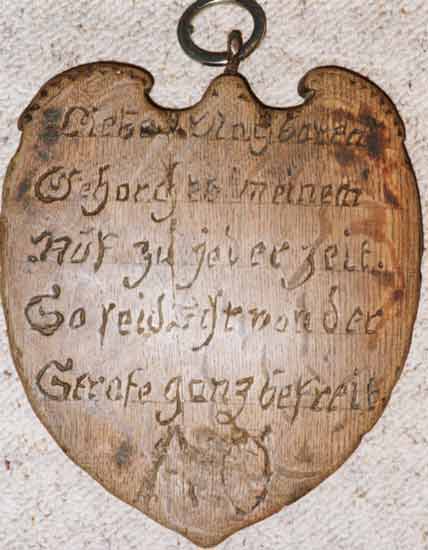 Liebe Nagbaren
Gehorchet meinem
Ruf zu jeder zeit.
So seid Ihr von der
Strafe ganz befreit.